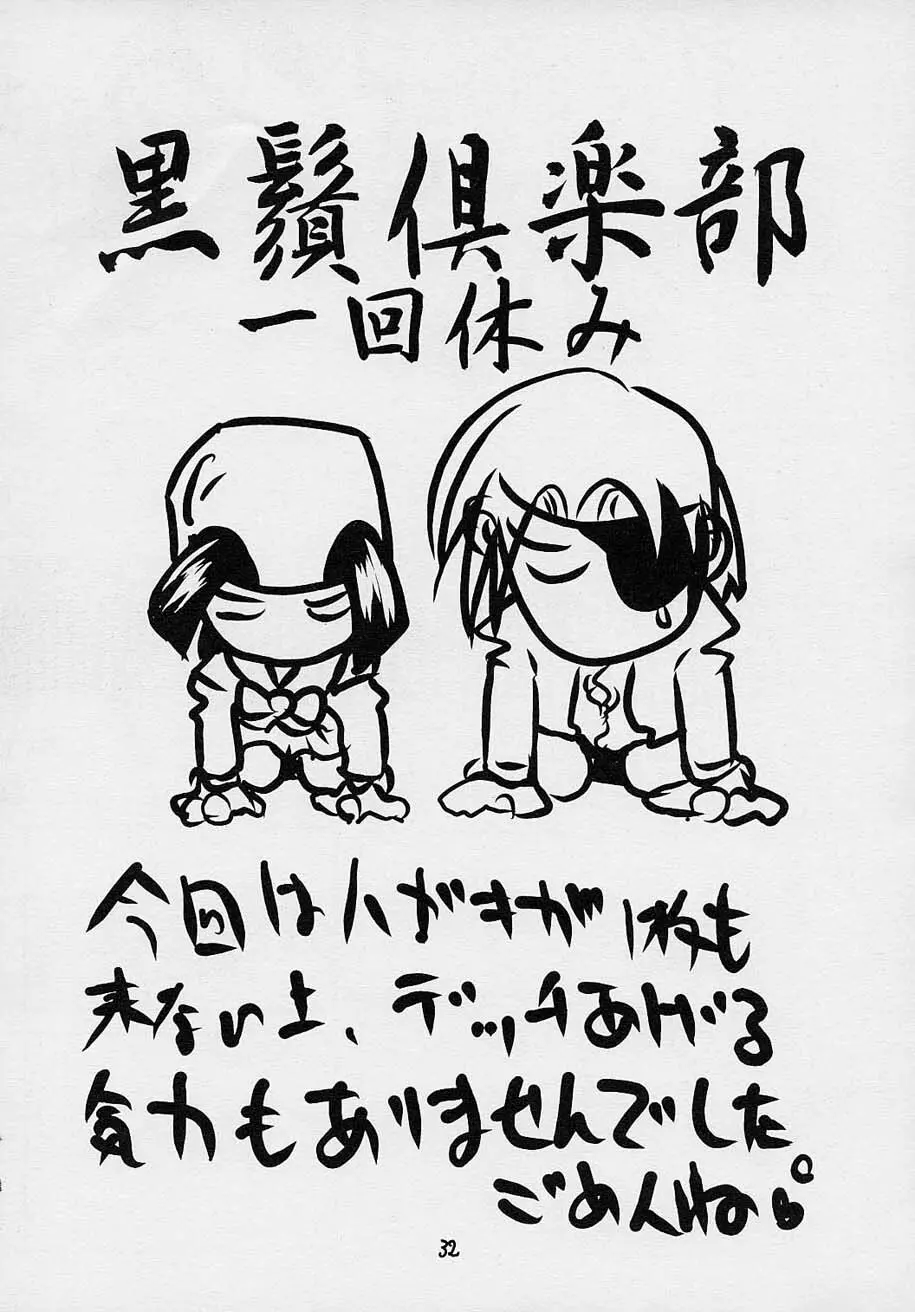 黒鬚倶楽部
一回休み
今回はハガキが1枚も
来ない上、デッチあげる
気力もありませんでした
ごめんね。
32